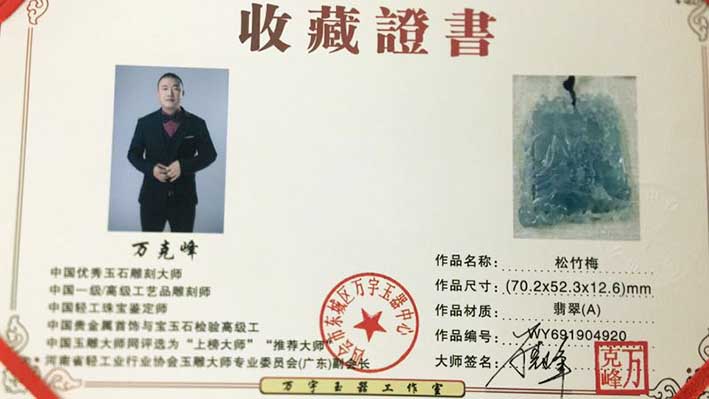 收藏證書
万克峰
中国优秀玉石雕刻大师
中国一级/高级工艺品雕刻师
中国轻工珠宝鉴定师
中国贵金属首饰与宝玉石检验高级工
中国玉雕大师网评选为“上榜大师”“推荐大师”
河南省轻工业行业协会玉雕大师专业委员会(广东)副会长
市东城区万宇玉器中心
作品名称: 松竹梅
作品尺寸: (70.2x52.3x12.6)mm
作品材质: 翡翠(A)
作品编号: WY691904920
大师签名:
万克峰
万宇玉器工作室